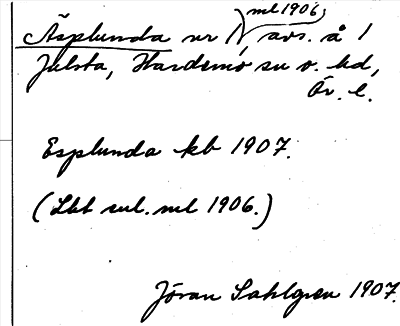 Äsplunda nr 1, ml 1906; avs. å 1
Julsta, Hardemo sn o. hd,
Ör. l.
Esplunda kb 1907.
(Lbt sul. ml 1906.)
Jöran Sahlgren 1907.